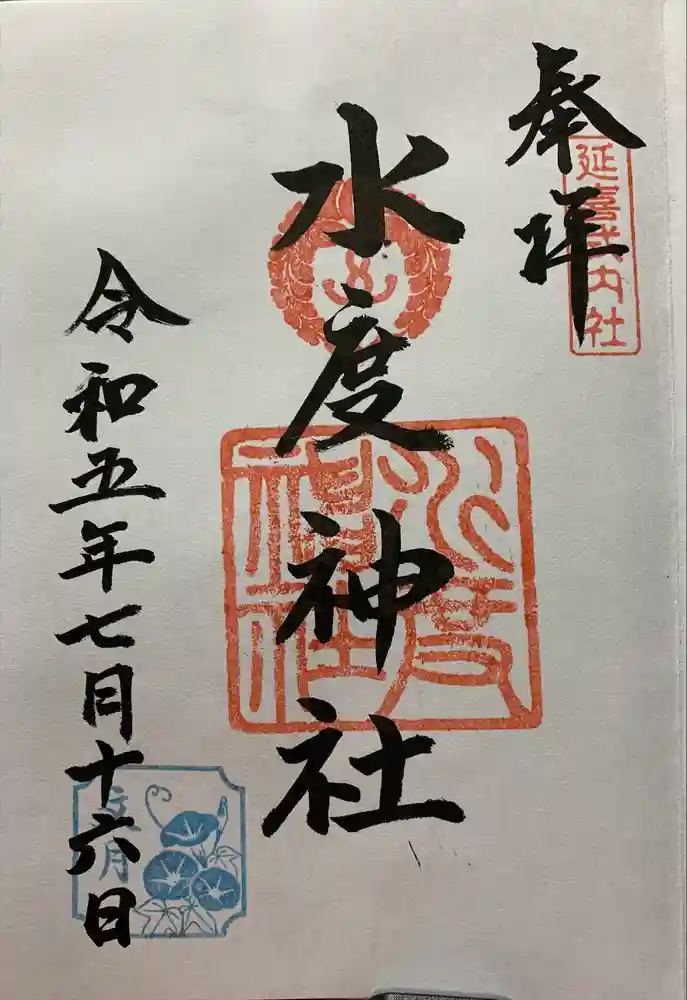 奉拝
延喜式内社
水度神社
水度
神社
令和五年七月十六日
文月